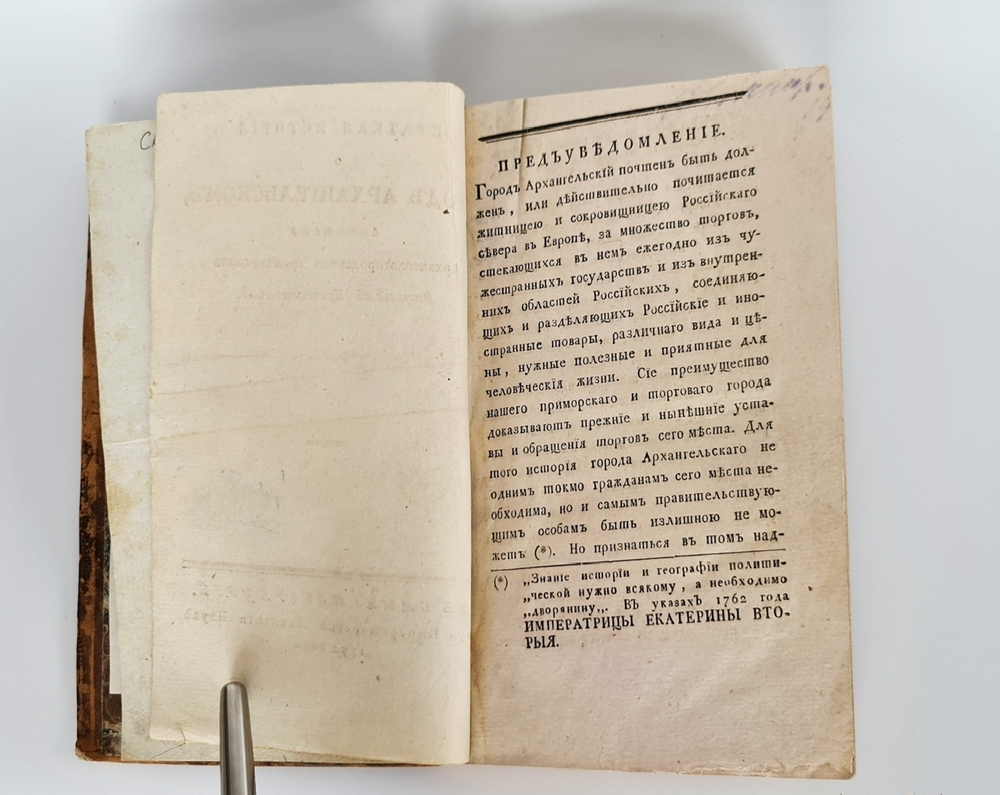 ПРЕДЪУВѢДОМЛЕНІЕ.
Городъ Архангельскій почтенъ быть дол-
женъ, или дѣйствительно почитается
житницею и сокровищницею Россійскаго
сѣвера въ Европѣ, за множество торговъ,
стекающихся въ немъ ежегодно изъ чу-
жестранныхъ государствъ и изъ внутрен-
нихъ областей Россійскихъ, соединяю-
щихъ и раздѣляющихъ Россійскіе и ино-
странные товары, различнаго вида и цѣ-
ны, нужные полезные и пріятные для
человѣческія жизни. Сіе преимущество
нашего приморскаго и торговаго города
доказываютъ прежніе и нынѣшніе уста-
вы и обращенія торговъ сего мѣста. Для
того исторія города Архангельскаго не
однимъ токмо гражданамъ сего мѣста не-
обходима, но и самымъ правительствую-
щимъ особамъ быть излишною не мо-
жетъ (*). Но признаться въ томъ над-
(*) „Знаніе исторіи и географіи полити-
„ческой нужно всякому, а необходимо
„дворянину„. Въ указахъ 1762 года
ИМПЕРАТРИЦЫ ЕКАТЕРИНЫ ВТО-
РЫЯ.